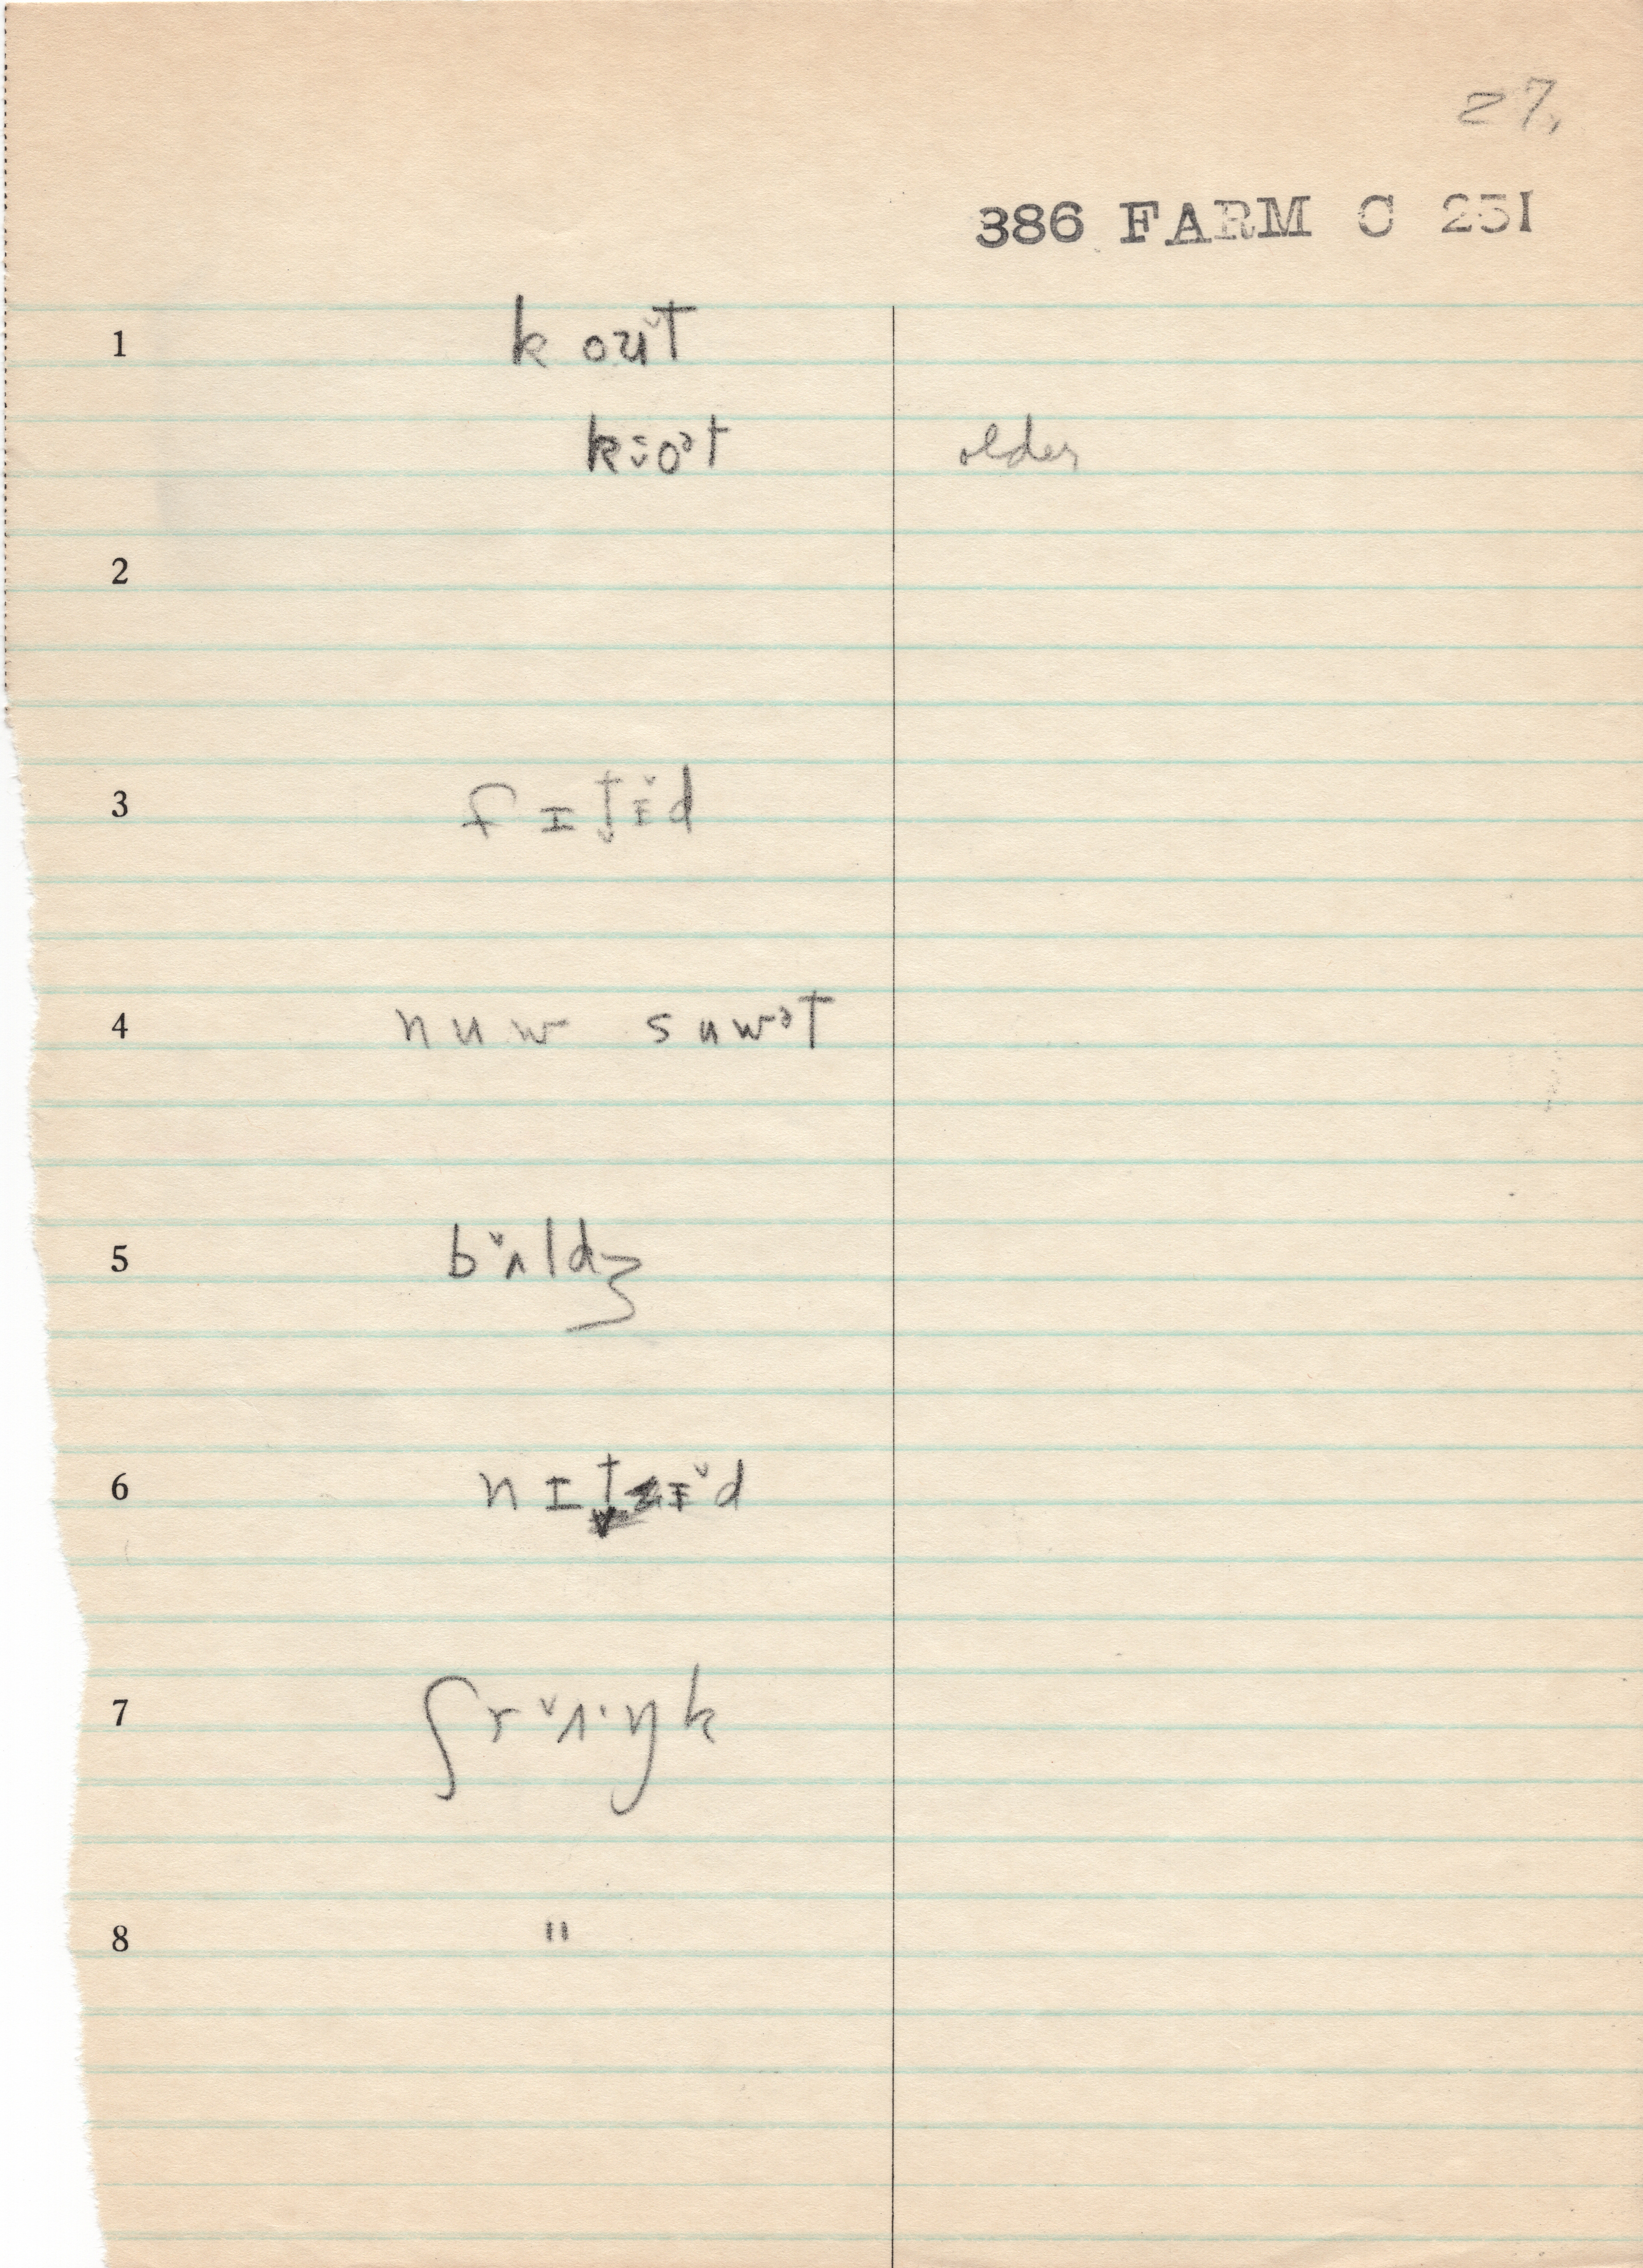 27.
386 FARM C 25I
1 k oʊ̌t
k:̌oᵊt older
2
3 f ɪ t̬ ɪ̵̌d
4 nuw suwᵊt
5 b̌ʌldʒ
6 n ɪ t̬ ɪ̵̌d
7 ʃr ̌ʌ·ŋk
8 "